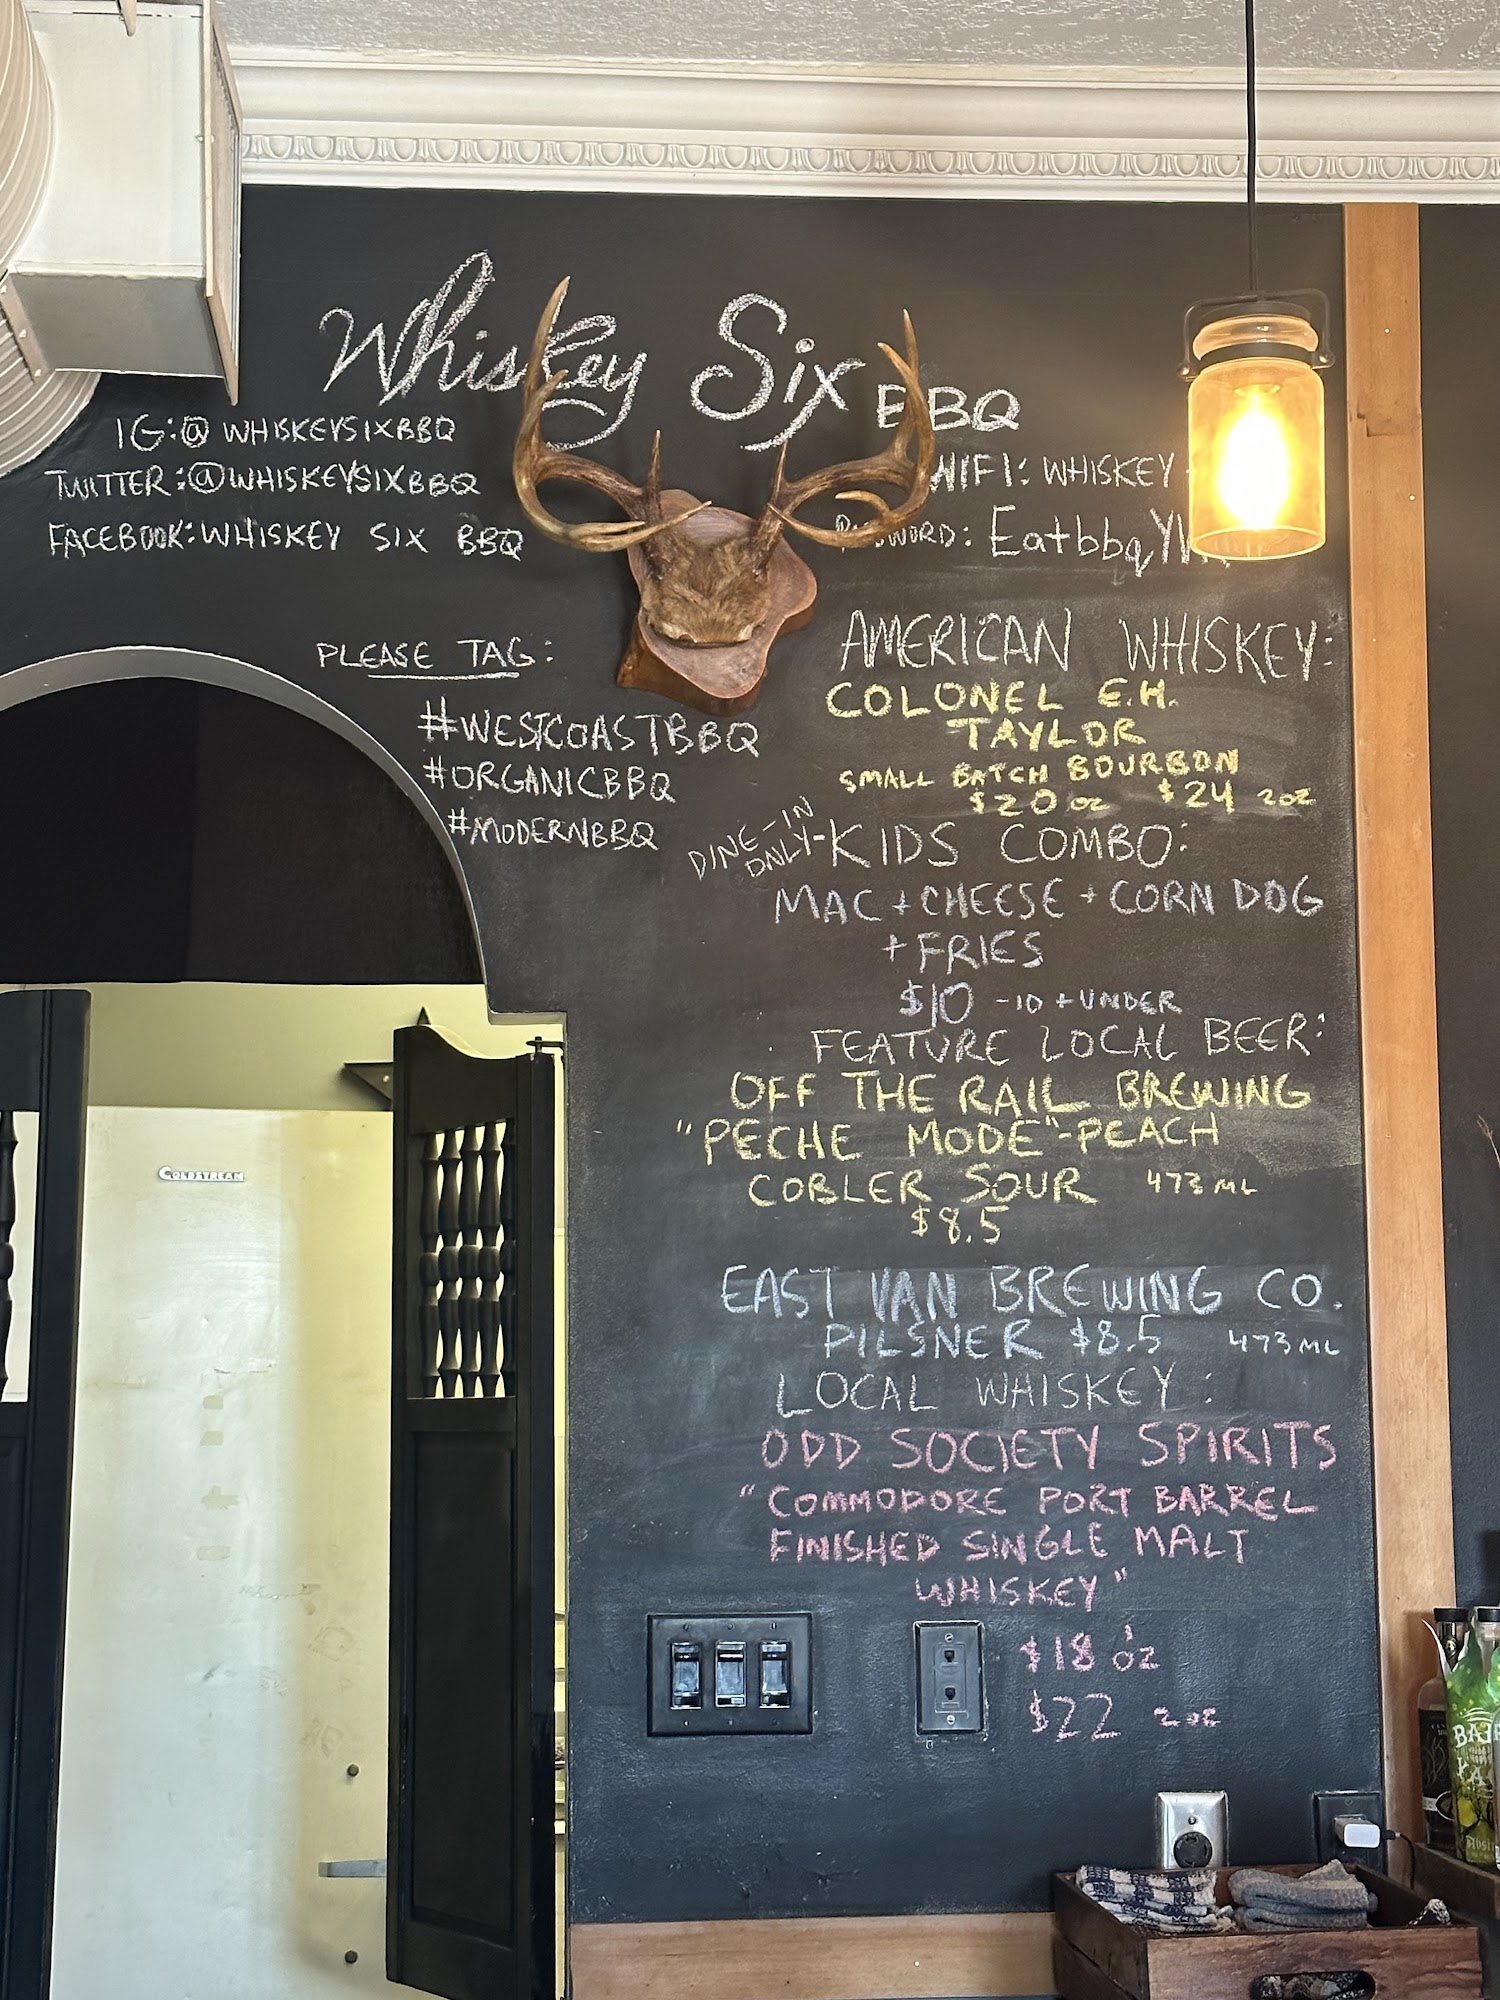 Whiskey Six BBQ
IG:@WHISKEYSIXBBQ
TWITTER:@WHISKEYSIXBBQ
FACEBOOK:WHISKEY SIX BBQ
WIFI: WHISKEY
PASSWORD:
PLEASE TAG:
#WESTCOASTBBQ
#ORGANICBBQ
#MODERNBBQ
AMERICAN WHISKEY:
COLONEL E.H.
TAYLOR
SMALL BATCH BOURBON
$20 oz $24 2oz
DINE-IN
ONLY-KIDS COMBO:
MAC + CHEESE + CORN DOG
+ FRIES
$10 -10 + UNDER
FEATURE LOCAL BEER:
OFF THE RAIL BREWING
"PECHE MODE"-PEACH
COBLER SOUR 473 ML
$8.5
EAST VAN BREWING CO.
PILSNER $8.5 473 ML
LOCAL WHISKEY:
ODD SOCIETY SPIRITS
"COMMODORE PORT BARREL
FINISHED SINGLE MALT
WHISKEY"
$18 oz
$22 2oz
COLDSTREAM